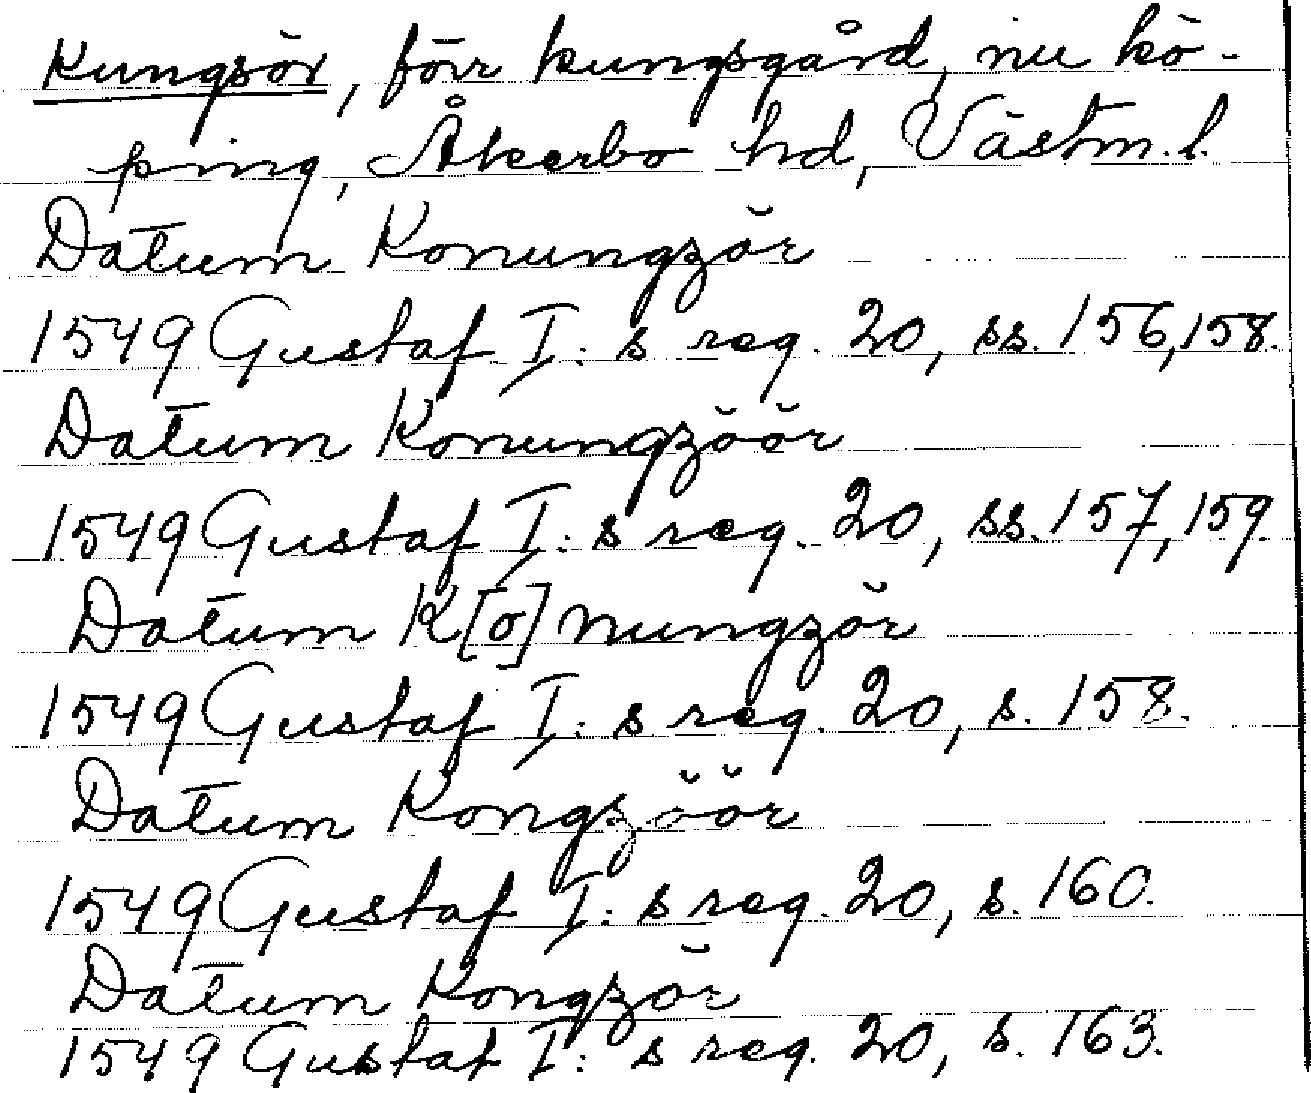 Kungsör, förr kungsgård, nu kö-
ping, Åkerbo hd, Västm. l.
Datum Konungzör
1549 Gustaf I:s reg. 20, ss. 156, 158.
Datum Konungzöör
1549 Gustaf I:s reg. 20, ss. 157, 159.
Datum K[o]nungzör
1549 Gustaf I:s reg. 20, s. 158.
Datum Kongzöör
1549 Gustaf I:s reg. 20, s. 160.
Datum Kongzör
1549 Gustaf I:s reg. 20, s. 163.